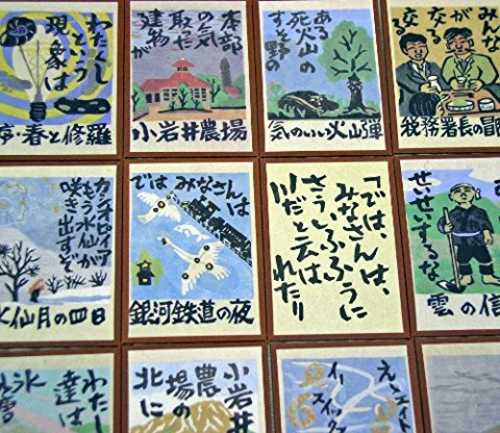 わたくし
という
現象は
序・春と修羅
本部
の気
取った
建物
が
小岩井農場
ある
死火山の
すそ野の
気のいい火山弾
みんな
が
交る
交る
税務署長の冒
カシオピイア
もう水仙が
咲き出すぞ
水仙月の四日
では みなさんは
銀河鉄道の夜
「では、
みなさんは、
さういふふうに
川だと云は
れたり
せいせいするな
雲の信
わたし
達は
氷
小岩井
農
場の
北に